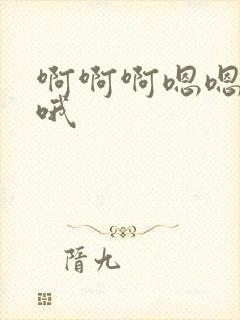 啊啊啊嗯嗯
哦
隋九